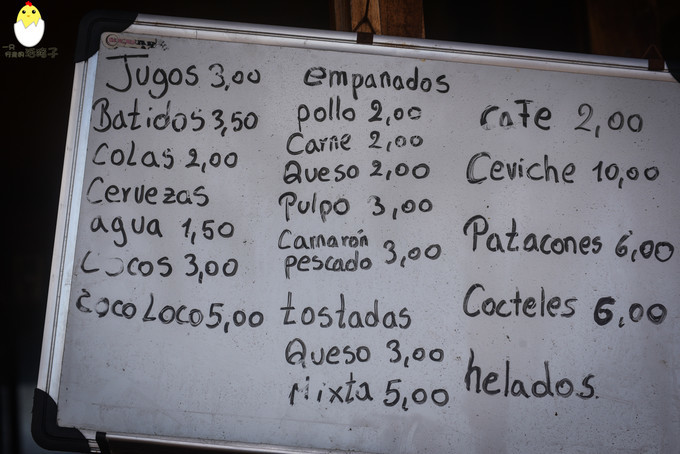 Jugos 3,00
Batidos 3,50
Colas 2,00
Cervezas
agua 1,50
Cocos 3,00
Coco Loco 5,00
empanados
pollo 2,00
Carne 2,00
Queso 2,00
Pulpo 3,00
Camarón
pescado 3,00
tostadas
Queso 3,00
Mixta 5,00
cafe 2,00
Ceviche 10,00
Patacones 6,00
Cocteles 6,00
helados.